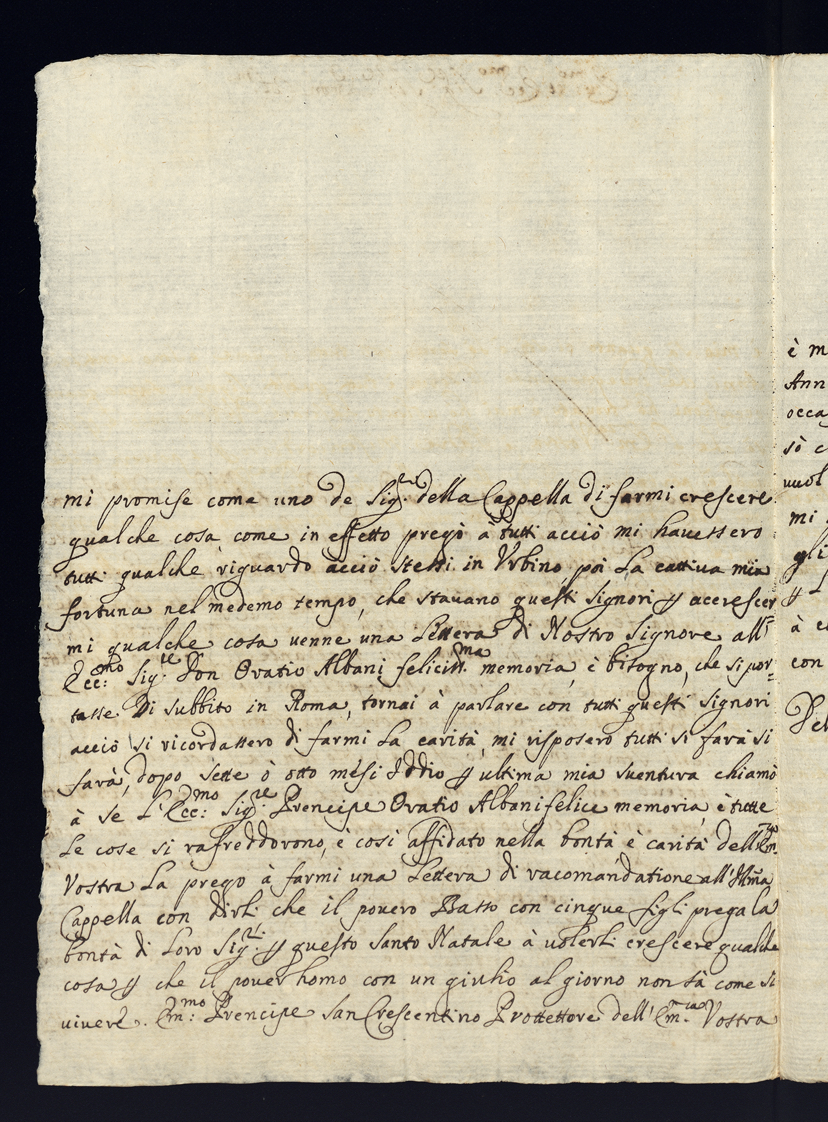 mi promise come uno de Sig.ri della Cappella di farmi crescere
qualche cosa come in effetto pregò à tutti acciò mi havessero
tutti qualche riguardo acciò stessi in Urbino poi la cattiva mia
fortuna nel medemo tempo, che stavano questi Signori p accrescer
mi qualche cosa venne una Lettera di Nostro Signore all'
Ecc:mo Sig.re Don Oratio Albani feliciss.ma memoria, è bisogno, che si por=
tasse. Di subbito in Roma, tornai à parlare con tutti questi Signori
acciò si ricordassero di farmi la carità, mi risposero tutti si farà si
farà, dopo sette ò otto mesi Iddio p ultima mia sventura chiamò
à se L'Ecc:mo Sig.re Prencipe Oratio Albani felice memoria, è tutte
Le cose si rafreddorono, è così affidato nella bontà è carità dell'Em.za
Vostra La prego à farmi una Lettera di racomandatione all'Illma
Cappella con dirli che il povero Basso con cinque figli prega la
bontà di Loro Sig.ri p questo Santo Natale à volerli crescere qualche
cosa p che il pover homo con un giulio al giorno non sà come si
vivere. Em:mo Prencipe San Crescentino Prottettore dell'Em.za Vostra
è m
Ann
occa
sò c
vuol
mi
gli
p L
à
con